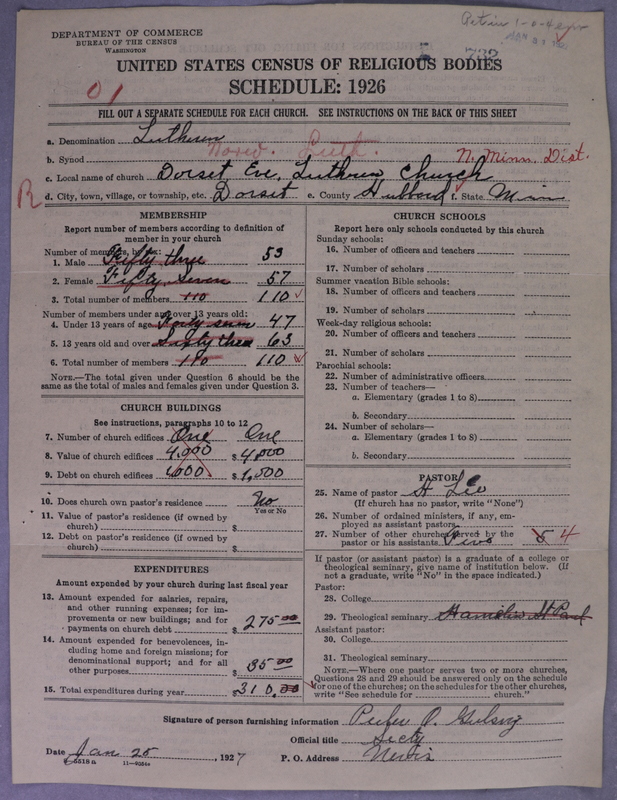 DEPARTMENT OF COMMERCE
BUREAU OF THE CENSUS
WASHINGTON
UNITED STATES CENSUS OF RELIGIOUS BODIES
SCHEDULE: 1926
01
FILL OUT A SEPARATE SCHEDULE FOR EACH CHURCH. SEE INSTRUCTIONS ON THE BACK OF THIS SHEET
a. Denomination Lutheran
Norw. Luth.
b. Synod N. Minn. Dist.
c. Local name of church Dorset Ev. Lutheran Church
R d. City, town, village, or township, etc. Dorset e. County Hubbard f. State Minn
MEMBERSHIP
Report number of members according to definition of
member in your church
Number of members, by sex:
1. Male Fifty three 53
2. Female Fifty seven 57
3. Total number of members 110 110
Number of members under and over 13 years old:
4. Under 13 years of age Forty seven 47
5. 13 years old and over Sixty three 63
6. Total number of members 110 110
NOTE.—The total given under Question 6 should be the
same as the total of males and females given under Question 3.
CHURCH BUILDINGS
See instructions, paragraphs 10 to 12
7. Number of church edifices One One
8. Value of church edifices 4,000 $ 4,000
9. Debt on church edifices $ 1,500
10. Does church own pastor's residence No
Yes or No
11. Value of pastor's residence (if owned by
church) $
12. Debt on pastor's residence (if owned by
church) $
EXPENDITURES
Amount expended by your church during last fiscal year
13. Amount expended for salaries, repairs,
and other running expenses; for im-
provements or new buildings; and for
payments on church debt $ 275.00
14. Amount expended for benevolences, in-
cluding home and foreign missions; for
denominational support; and for all
other purposes $ 35.00
15. Total expenditures during year $ 310.00
CHURCH SCHOOLS
Report here only schools conducted by this church
Sunday schools:
16. Number of officers and teachers
17. Number of scholars
Summer vacation Bible schools:
18. Number of officers and teachers
19. Number of scholars
Week-day religious schools:
20. Number of officers and teachers
21. Number of scholars
Parochial schools:
22. Number of administrative officers
23. Number of teachers—
a. Elementary (grades 1 to 8)
b. Secondary
24. Number of scholars—
a. Elementary (grades 1 to 8)
b. Secondary
PASTOR
25. Name of pastor
(If church has no pastor, write "None")
26. Number of ordained ministers, if any, em-
ployed as assistant pastors
27. Number of other churches served by the
pastor or his assistants Five 5 4
If pastor (or assistant pastor) is a graduate of a college or
theological seminary, give name of institution below. (If
not a graduate, write "No" in the space indicated.)
Pastor:
28. College
29. Theological seminary St Paul
Assistant pastor:
30. College
31. Theological seminary
NOTE.—Where one pastor serves two or more churches,
Questions 28 and 29 should be answered only on the schedule
for one of the churches; on the schedules for the other churches,
write "See schedule for church."
Signature of person furnishing information
Official title Secty
Date Jan 25 1927 P. O. Address Nevis